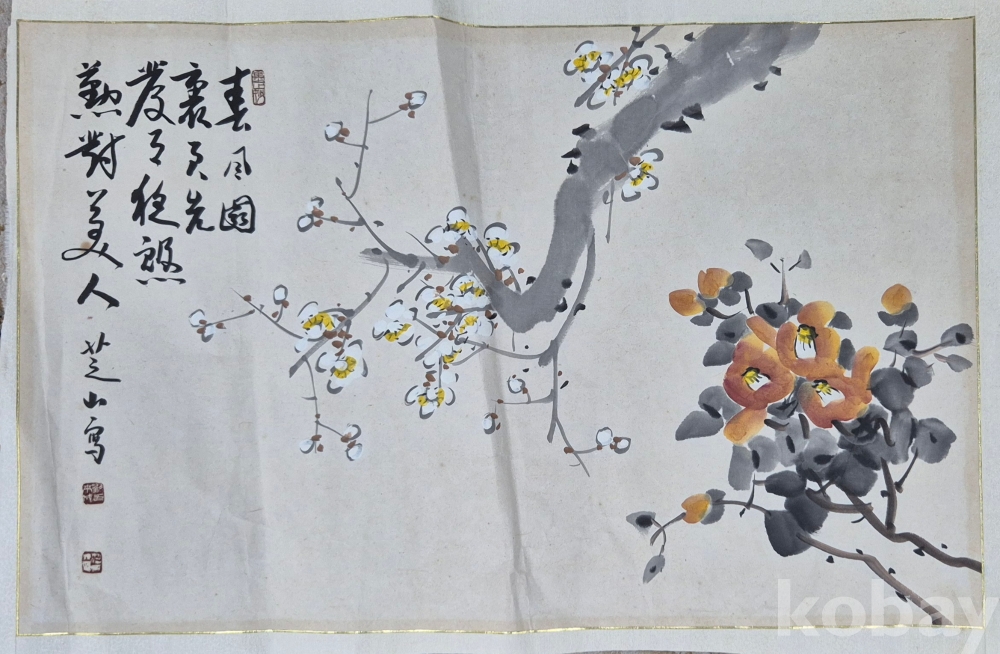 春風園
裏先
發種慇
懃對美人 芝山寫
kobay